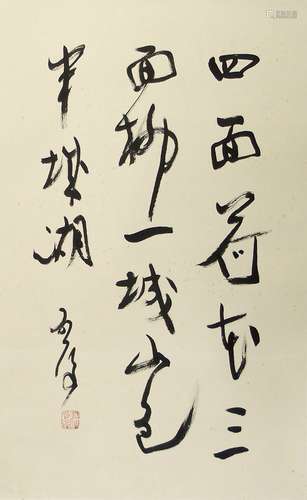 四面荷花三
面柳一城山色
半城湖